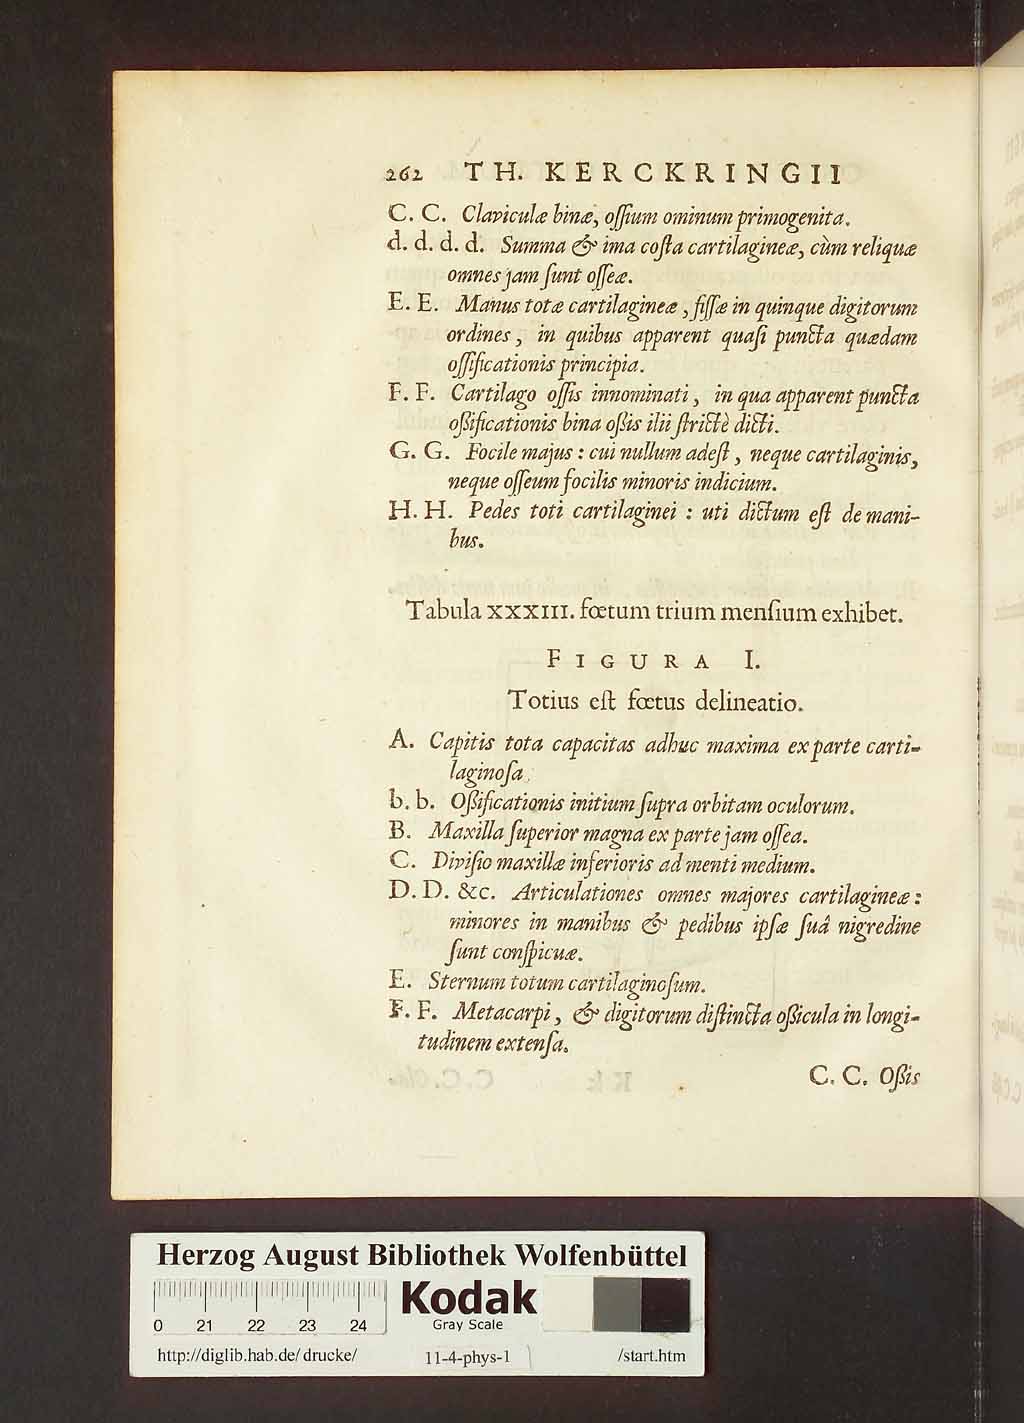 262 TH. KERCKRINGII
C. C. Claviculæ binæ, oſſium ominum primogenita.
d. d. d. d. Summa & ima coſta cartilagineæ, cùm reliquæ
omnes jam ſunt oſſeæ.
E. E. Manus totæ cartilagineæ, fiſſæ in quinque digitorum
ordines, in quibus apparent quaſi puncta quædam
oſſificationis principia.
F. F. Cartilago oſſis innominati, in qua apparent puncta
oßificationis bina oßis ilii ſtrictè dicti.
G. G. Focile majus: cui nullum adeſt, neque cartilaginis,
neque oſſeum focilis minoris indicium.
H. H. Pedes toti cartilaginei: uti dictum eſt de mani-
bus.
Tabula XXXIII. fœtum trium menſium exhibet.
FIGURA I.
Totius eſt fœtus delineatio.
A. Capitis tota capacitas adhuc maxima ex parte carti-
laginoſa.
b. b. Oßificationis initium ſupra orbitam oculorum.
B. Maxilla ſuperior magna ex parte jam oſſea.
C. Diviſio maxillæ inferioris ad menti medium.
D. D. &c. Articulationes omnes majores cartilagineæ:
minores in manibus & pedibus ipſæ ſuâ nigredine
ſunt conſpicuæ.
E. Sternum totum cartilaginoſum.
F. F. Metacarpi, & digitorum diſtincta oßicula in longi-
tudinem extenſa.
C. C. Oßis
Herzog August Bibliothek Wolfenbüttel
Kodak
Gray Scale
0 21 22 23 24
http://diglib.hab.de/drucke/ 11-4-phys-1 /start.htm